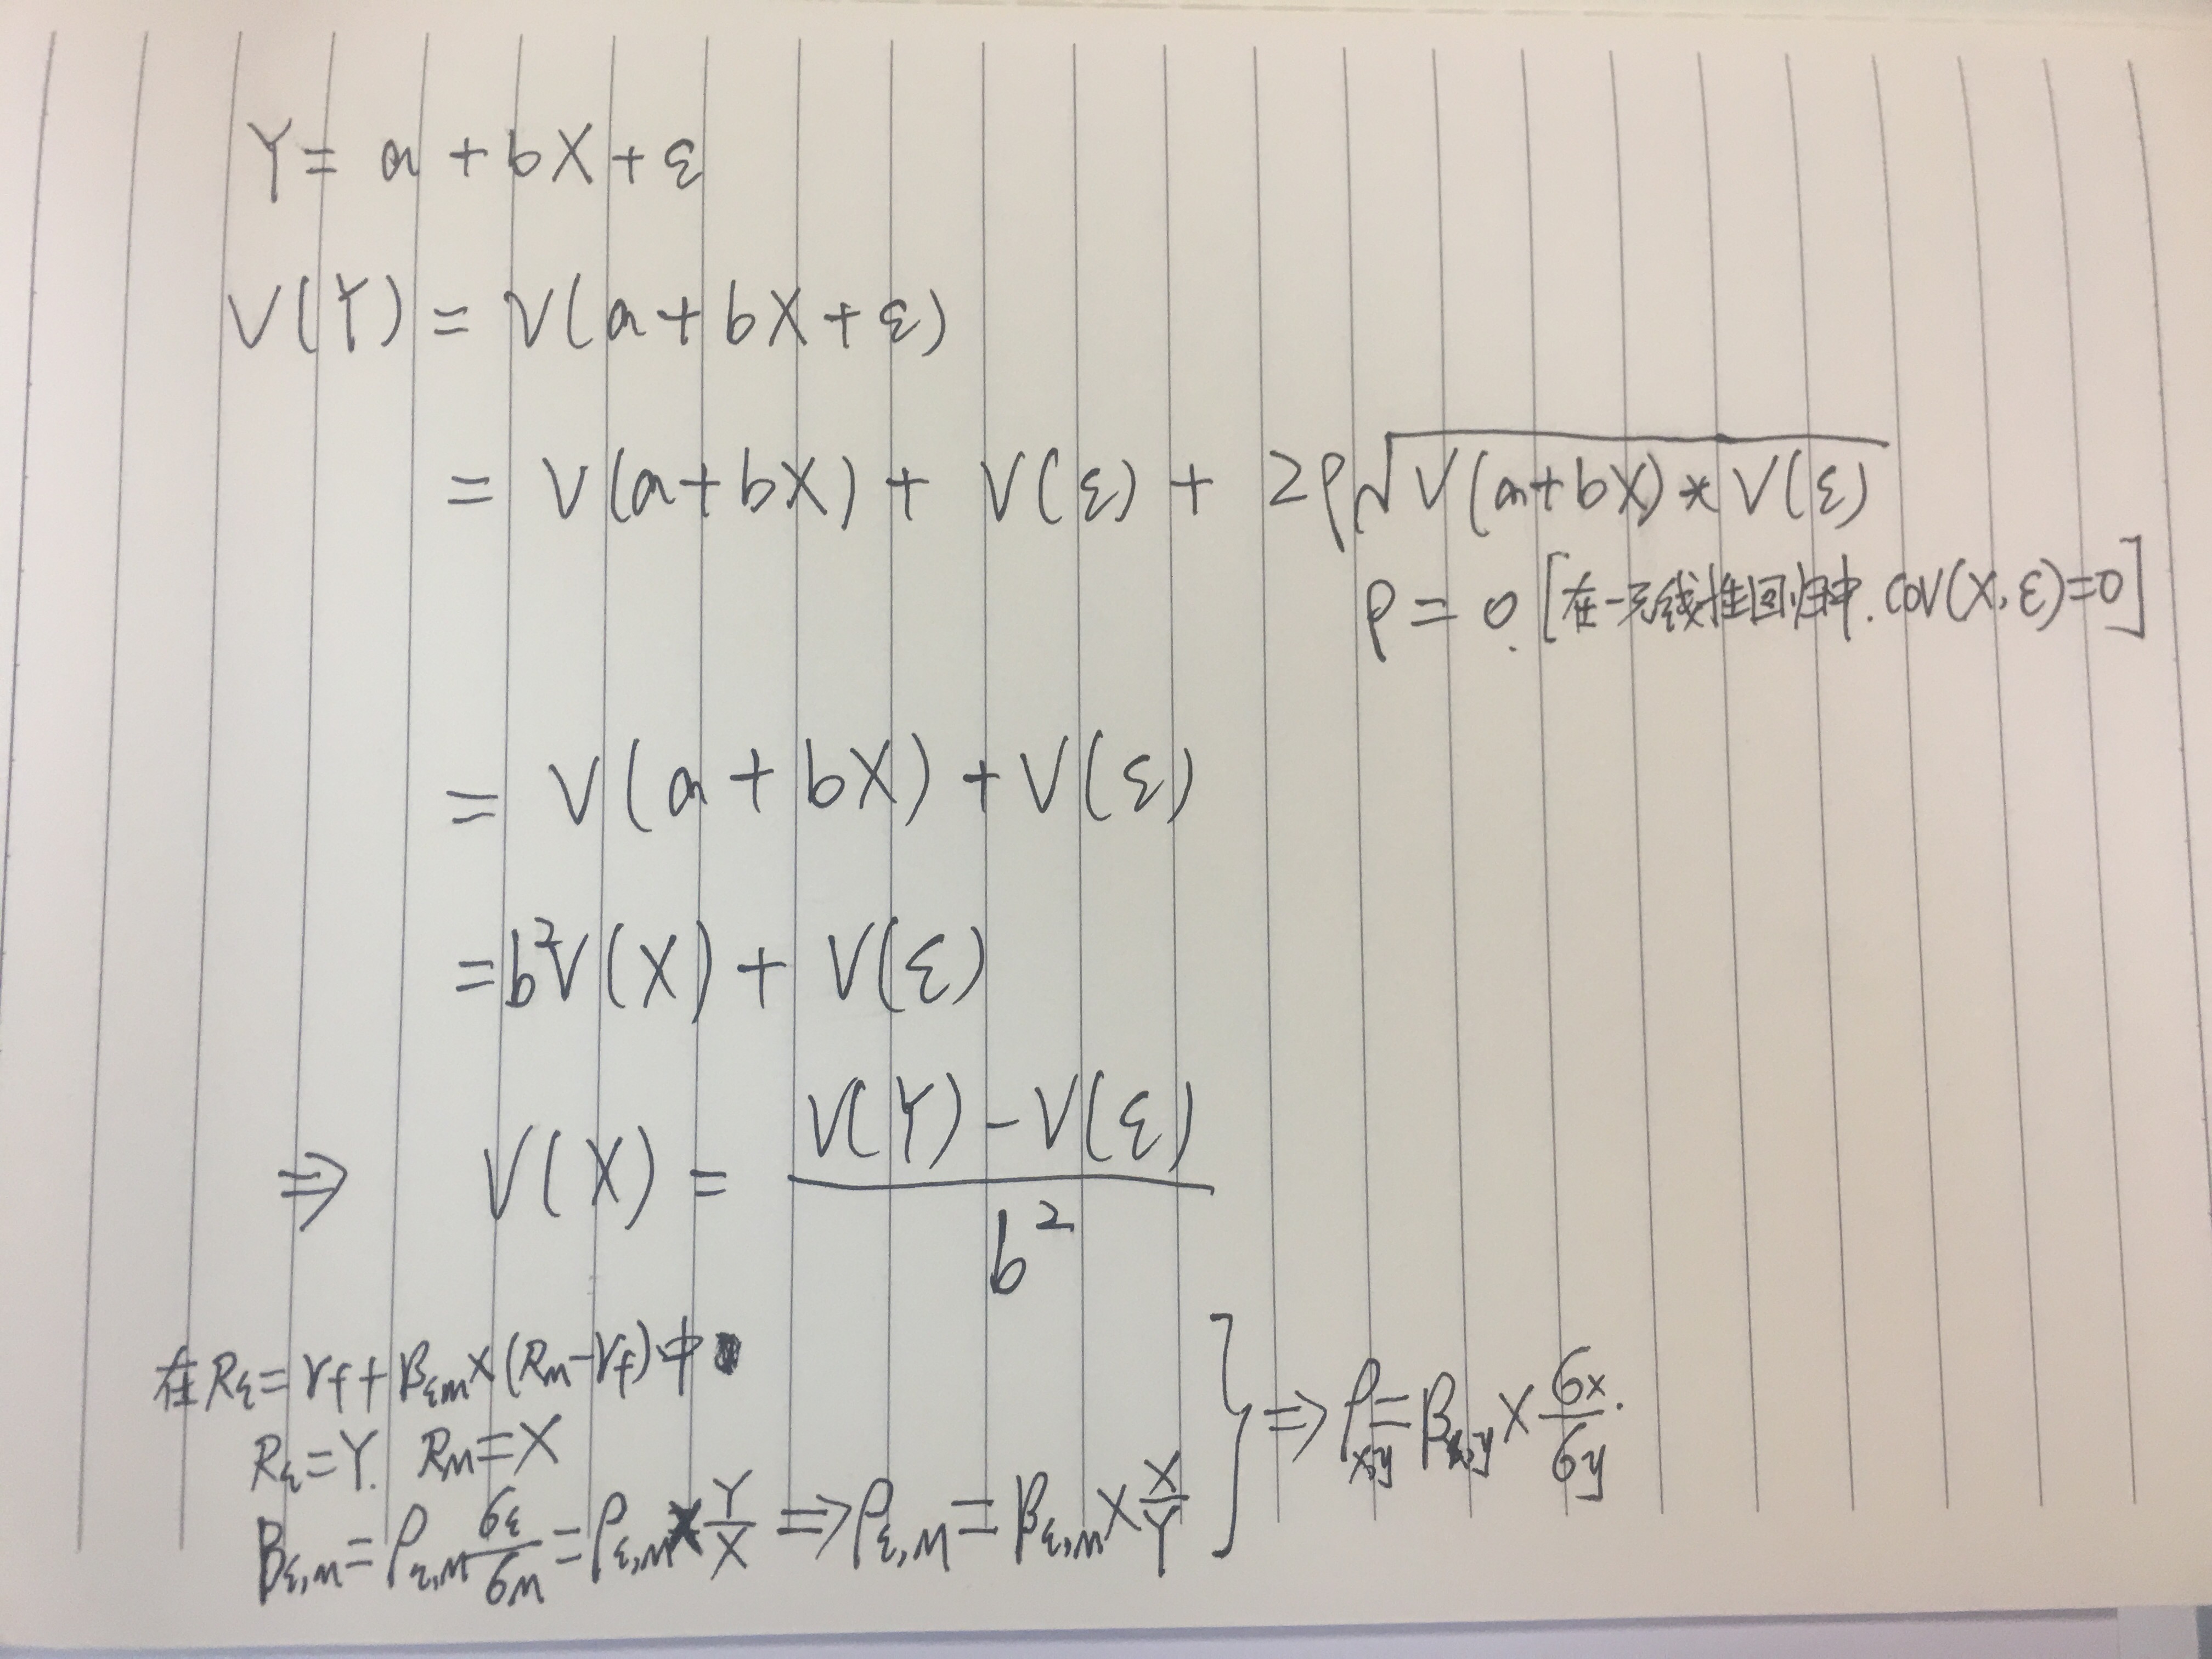 Y = a + bX + ε
V(Y) = V(a + bX + ε)
= V(a+bX) + V(ε) + 2ρ√V(a+bX) * V(ε)
ρ = 0. [在一元线性回归中. COV(X,ε)=0]
= V(a + bX) + V(ε)
= b²V(X) + V(ε)
⇒ V(X) = (V(Y) - V(ε)) / b²
在 Rε = rf + βεm × (Rm - rf) 中
Rε = Y. Rm = X
βε,m = ρε,m σε/σm = ρε,m × Y/X ⇒ ρε,m = βε,m × X/Y } ⇒ ρx,y = βx,y × σx/σy.